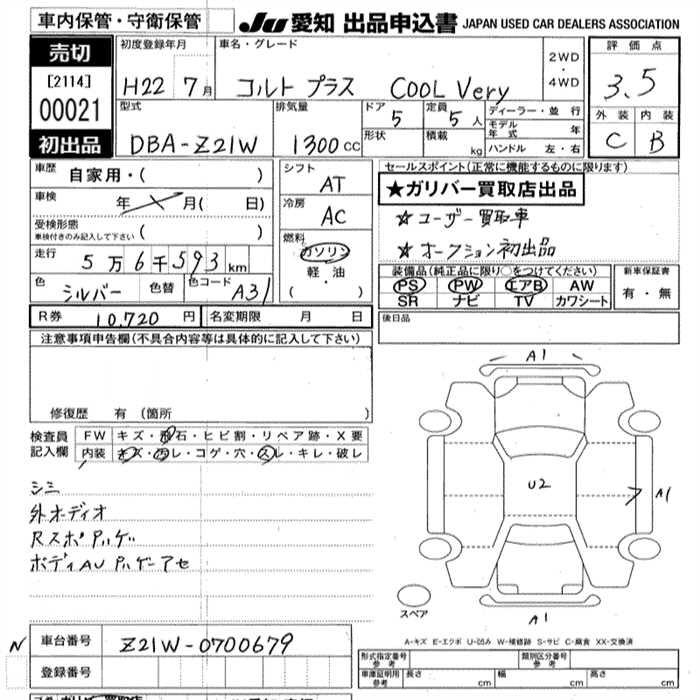 車内保管・守衛保管
JU 愛知 出品申込書 JAPAN USED CAR DEALERS ASSOCIATION
売切
[2114]
00021
初出品
初度登録年月 車名・グレード 2WD・4WD 評価点
H22 7月 コルト プラス COOL Very 3.5
型式 排気量 ドア 定員 ディーラー・並行 外装 内装
DBA-Z21W 1300cc 5 5人 モデル年式 年 C B
形状 積載 kg ハンドル 左・右
車歴 自家用・( )
車検 年 月( 日)
受検形態 ( )
車検付きのみ記入して下さい
走行 5万6千593km
色 シルバー 色替 色コード A31
シフト AT
冷房 AC
燃料 ガソリン
軽・油
( ・ )
セールスポイント(正常に機能するものに限ります)
★ガリバー買取店出品
☆ユーザー買取車
☆オークション初出品
装備品(純正品に限り○をつけてください) 新車保証書
PS PW エアB AW 有・無
SR ナビ TV カワシート
R券 10,720円 名変期限 月 日
後日品
注意事項申告欄(不具合内容等は具体的に記入して下さい)
修復歴 有 (箇所 )
検査員記入欄 FW キズ・飛石・ヒビ割・リペア跡・X要
内装 キズ・汚レ・コゲ・穴・スレ・キレ・破レ
シミ
外オーディオ
Rスポ
ボディAU
A1
U2
A1
A1
スペア
A-キズ E-エクボ U-凹み W-補修跡 S-サビ C-腐食 XX-交換済
N 車台番号 Z21W-0700679
登録番号
形式指定番号 参考 類別区分番号 参考
車庫証明用 参考 長さ cm 幅 cm 高さ cm